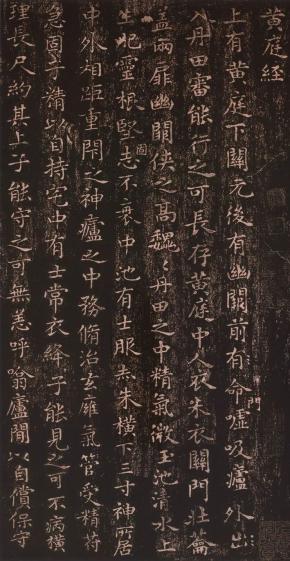 黄庭經
上有黄庭下關元後有幽闕前有命門噓吸廬外出
入丹田審能行之可長存黄庭中人衣朱衣關門壯蘥
蓋兩扉幽闕俠之高魏魏丹田之中精氣微玉池清水上
生肥靈根堅固志不衰中池有士服赤朱橫下三寸神所居
中外相距重閇之神廬之中務脩治玄廱氣管受精符
急固子精以自持宅中有士常衣絳子能見之可不病橫
理長尺約其上子能守之可無恙呼噏廬間以自償保守